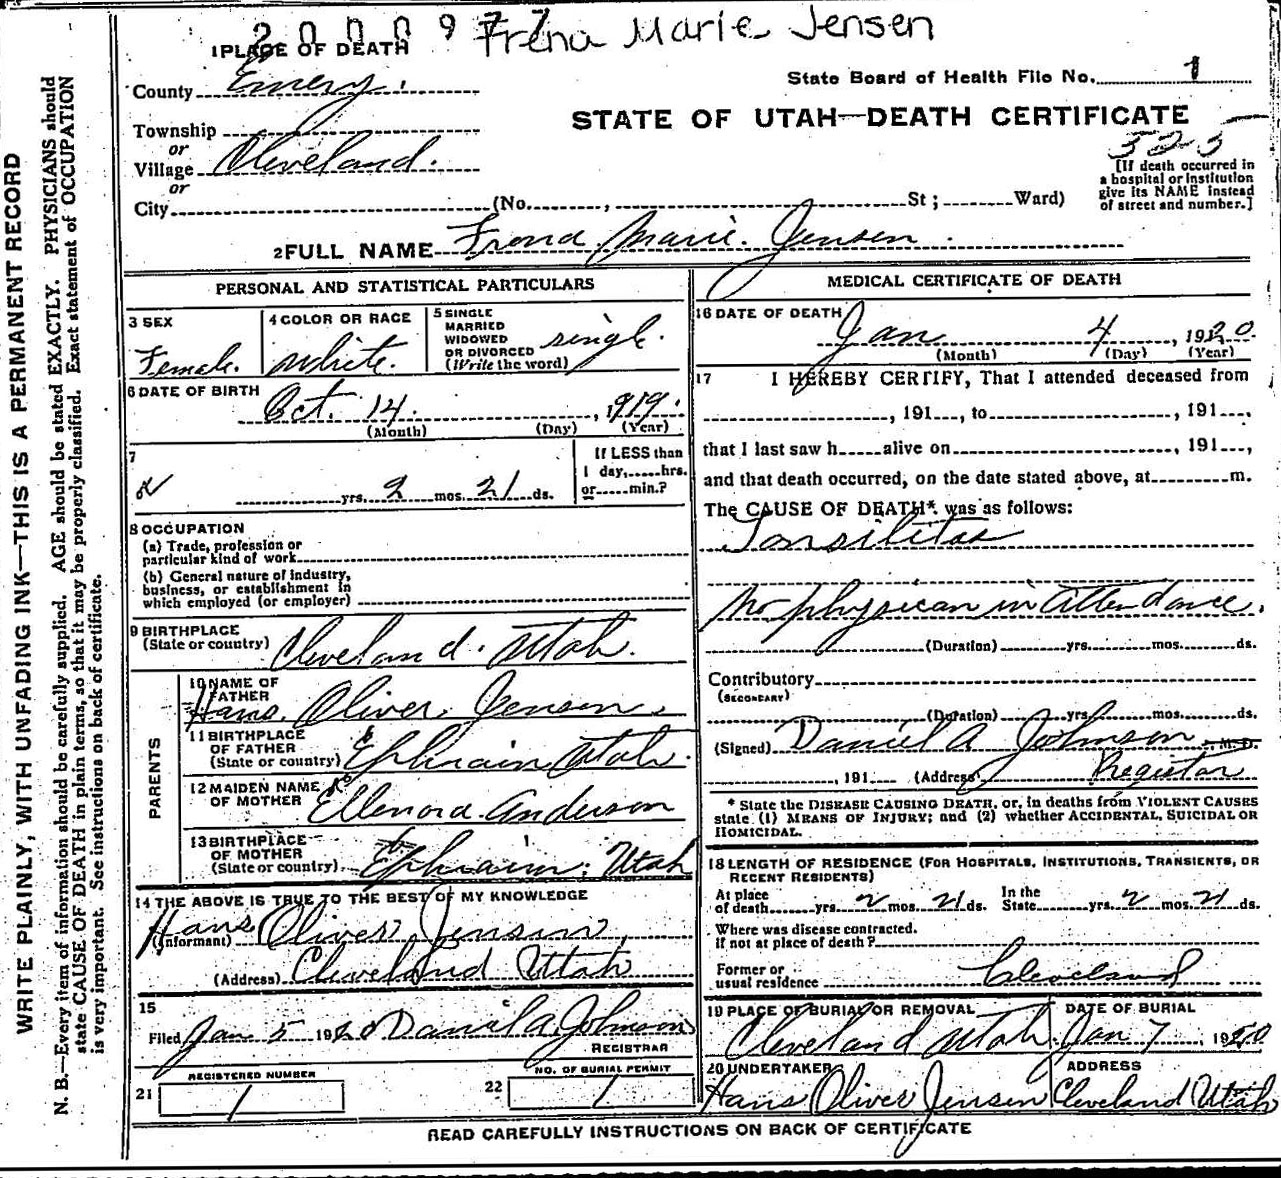 2000977 Frena Marie Jensen
1 PLACE OF DEATH
County Emery.
State Board of Health File No. 1
STATE OF UTAH—DEATH CERTIFICATE
Township
or
Village Cleveland.
or
City (No. , St ; Ward)
325
[If death occurred in
a hospital or institution
give its NAME instead
of street and number.]
2 FULL NAME Frena Marie. Jensen.
PERSONAL AND STATISTICAL PARTICULARS
3 SEX
Female.
4 COLOR OR RACE
White.
5 SINGLE
MARRIED
WIDOWED
OR DIVORCED
(Write the word)
single.
6 DATE OF BIRTH
Oct. 14. , 1919.
(Month) (Day) (Year)
7
yrs. 2 mos. 21 ds.
If LESS than
1 day, hrs.
or min.?
8 OCCUPATION
(a) Trade, profession or
particular kind of work
(b) General nature of industry,
business, or establishment in
which employed (or employer)
9 BIRTHPLACE
(State or country) Cleveland. Utah.
PARENTS
10 NAME OF
FATHER
Hans. Oliver. Jensen.
11 BIRTHPLACE
OF FATHER
(State or country) Ephraim Utah.
12 MAIDEN NAME
OF MOTHER Ellenora Anderson
13 BIRTHPLACE
OF MOTHER
(State or country) Ephraim. Utah
14 THE ABOVE IS TRUE TO THE BEST OF MY KNOWLEDGE
(Informant) Hans Oliver Jensen,
(Address) Cleveland Utah
15
Filed Jan 5 1920 Daniel A. Johnson
REGISTRAR
REGISTERED NUMBER
21 1
NO. OF BURIAL PERMIT
22 1
MEDICAL CERTIFICATE OF DEATH
16 DATE OF DEATH
Jan 4 , 1920.
(Month) (Day) (Year)
17 I HEREBY CERTIFY, That I attended deceased from
, 191 , to , 191 ,
that I last saw h alive on , 191 ,
and that death occurred, on the date stated above, at m.
The CAUSE OF DEATH* was as follows:
Tonsilitas
No physican in attendance.
(Duration) yrs. mos. ds.
Contributory
(SECONDARY)
(Duration) yrs. mos. ds.
(Signed) Daniel A Johnson , M. D.
, 191 (Address) Registar
* State the DISEASE CAUSING DEATH, or, in deaths from VIOLENT CAUSES
state (1) MEANS OF INJURY; and (2) whether ACCIDENTAL, SUICIDAL OR
HOMICIDAL.
18 LENGTH OF RESIDENCE (FOR HOSPITALS, INSTITUTIONS, TRANSIENTS, OR
RECENT RESIDENTS)
At place
of death yrs. 2 mos. 21 ds.
In the
State yrs. 2 mos. 21 ds.
Where was disease contracted.
if not at place of death?
Former or
usual residence Cleveland
19 PLACE OF BURIAL OR REMOVAL
Cleveland Utah.
DATE OF BURIAL
Jan 7 , 1920
20 UNDERTAKER
Hans Oliver Jensen
ADDRESS
Cleveland Utah
READ CAREFULLY INSTRUCTIONS ON BACK OF CERTIFICATE
WRITE PLAINLY, WITH UNFADING INK—THIS IS A PERMANENT RECORD
N. B.—Every item of information should be carefully supplied. AGE should be stated EXACTLY. PHYSICIANS should
state CAUSE OF DEATH in plain terms, so that it may be properly classified. Exact statement of OCCUPATION
is very important. See instructions on back of certificate.